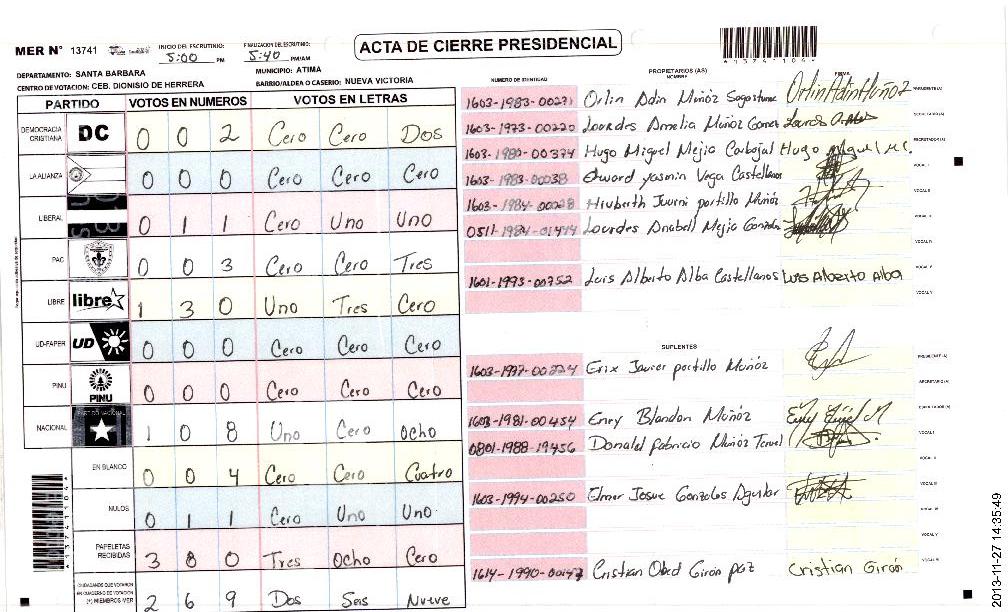 MER N° 13741
INICIO DEL ESCRUTINIO: 5:00 PM
FINALIZACION DEL ESCRUTINIO: 5:40 PM/AM
ACTA DE CIERRE PRESIDENCIAL
*13741104*
DEPARTAMENTO: SANTA BARBARA
MUNICIPIO: ATIMA
CENTRO DE VOTACION: CEB. DIONISIO DE HERRERA
BARRIO/ALDEA O CASERIO: NUEVA VICTORIA
PARTIDO VOTOS EN NUMEROS VOTOS EN LETRAS
DEMOCRACIA CRISTIANA DC 0 0 2 Cero Cero Dos
LA ALIANZA 0 0 0 Cero Cero Cero
LIBERAL 0 1 1 Cero Uno Uno
PAC 0 0 3 Cero Cero Tres
LIBRE libre 1 3 0 Uno Tres Cero
UD-FAPER UD 0 0 0 Cero Cero Cero
PINU PINU 0 0 0 Cero Cero Cero
NACIONAL PARTIDO NACIONAL 1 0 8 Uno Cero Ocho
EN BLANCO 0 0 4 Cero Cero Cuatro
NULOS 0 1 1 Cero Uno Uno
PAPELETAS RECIBIDAS 3 8 0 Tres Ocho Cero
CIUDADANOS QUE VOTARON EN CUADERNO DE VOTACION (+) MIEMBROS MER 2 6 9 Dos Seis Nueve
NUMERO DE IDENTIDAD PROPIETARIOS (AS) NOMBRE FIRMA
1603-1983-00271 Orlin Adin Muñóz Sagastume Orlin Adin Muñoz PRESIDENTE (A)
1603-1973-00220 Lourdes Amelia Muñóz Gomez SECRETARIO (A)
1603-1980-00374 Hugo Miguel Mejia Carbajal Hugo Miguel M.C. ESCRUTADOR (A)
1603-1983-00038 Edward yasmin Vega Castellanos VOCAL I
1603-1984-00028 portillo Muñóz VOCAL II
0511-1984-01444 Lourdes Anabell Mejia Gonzales
VOCAL IV
1601-1993-00752 Luis Alberto Alba Castellanos Luis Alberto Alba VOCAL V
SUPLENTES
1603-1997-00224 Erix Javier portillo Muñóz PRESIDENTE (A)
SECRETARIO (A)
1603-1981-00454 Enry Blandon Muñóz ESCRUTADOR (A)
0801-1988-19456 Donald fabricio Muñóz VOCAL I
1603-1994-00250 Elmer Josue Gonzales Aguilar
1614-1990-00147 Cristian Obed Girón paz Cristian Girón
*13741104*
2013-11-27 14:35:49